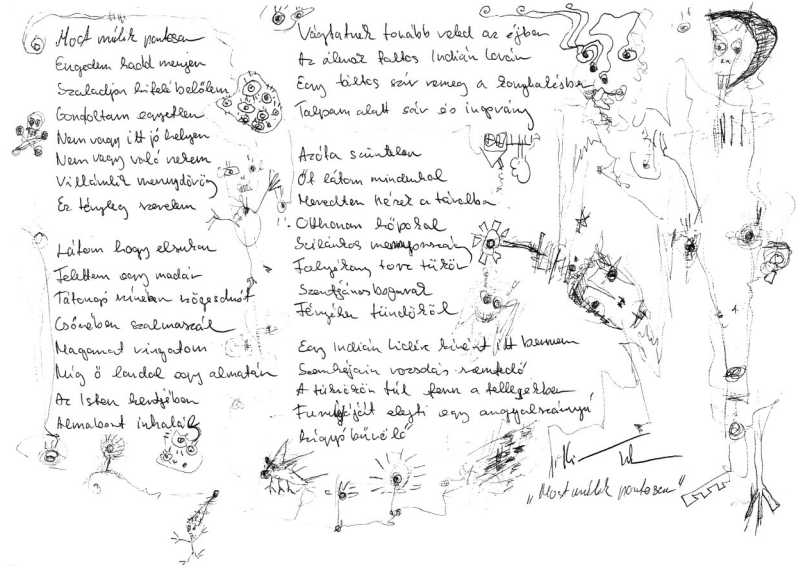 Most múlik pontosan
Engedem hadd menjen
Szaladjon kifelé belőlem
Gondoltam egyetlen
Nem vagy itt jó helyen
Nem vagy való nekem
Villámlik mennydörög
Ez tényleg szerelem
Látom hogy elsuhan
Felettem egy madár
Tátongó szívében szögesdrót
Csőrében szalmaszál
Magamat ringatom
Míg ő landol egy almafán
Az Isten kertjében
Almabort inhalál
Vágtatnék tovább veled az éjben
Az álmok foltos indián lován
Egy táltos szív remeg a konyhakésben
Talpam alatt sár és ingovány
Azóta szüntelen
Őt látom mindenhol
Meredten nézek a távolba
Otthonom kőpokol
Szilánkos mennyország
Folyékony torz tükör
Szentjánosbogarak
Fényében tündököl
Egy indián lidérc kísért itt bennem
Szemhéjain rozsdás szemfedő
A tükrökön túl fenn a fellegekben
Furulyáját elejti egy angyalszárnyú
kígyóbűvölő
„Most múlik pontosan"